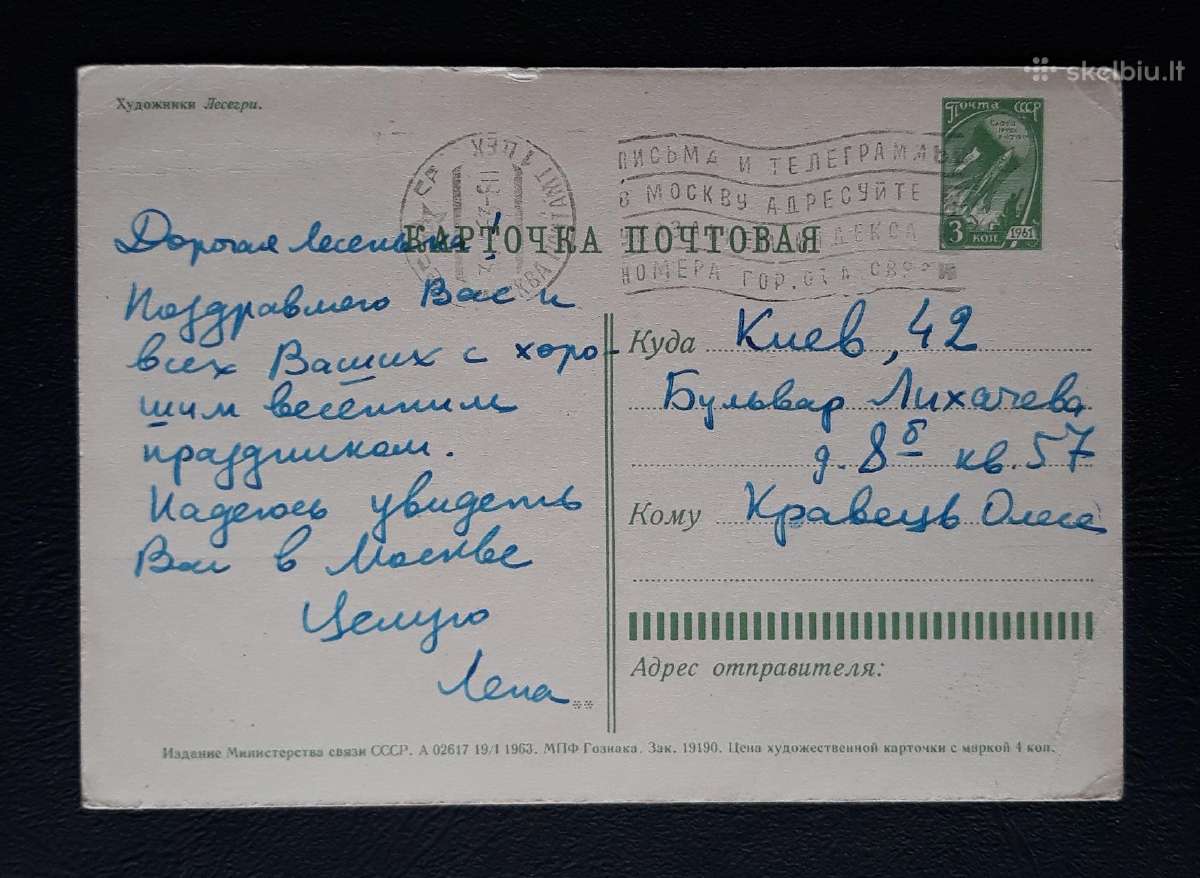 skelbiu.lt
Художники Лесегри.
Почта СССР
3 коп 1961
ПИСЬМА И ТЕЛЕГРАММЫ
В МОСКВУ АДРЕСУЙТЕ
НОМЕРА ГОР. ОТ-А СВЯЗИ
КАРТОЧКА ПОЧТОВАЯ
Дорогая Лесенька!
Поздравляю Вас и
всех Ваших с хоро-
шим весенним
праздником.
Надеюсь увидеть
Вас в Москве
Целую
Лена
Куда Киев, 42
Бульвар Лихачева
д. 8б кв. 57
Кому Кравець Олеса
Адрес отправителя:
Издание Министерства связи СССР. А 02617 19/I 1963. МПФ Гознака. Зак. 19190. Цена художественной карточки с маркой 4 коп.